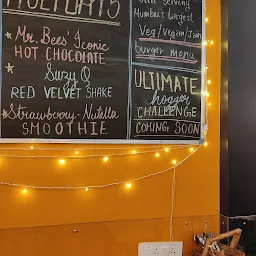 HOLIDAYS
★ Mr. Bees' Iconic
HOT CHOCOLATE
★ Suzy Q
RED VELVET SHAKE
★ Strawberry-Nutella
SMOOTHIE
serving
Mumbai's Largest
Veg/Vegan/Jain
burger menu
ULTIMATE
hogger
CHALLENGE
COMING SOON